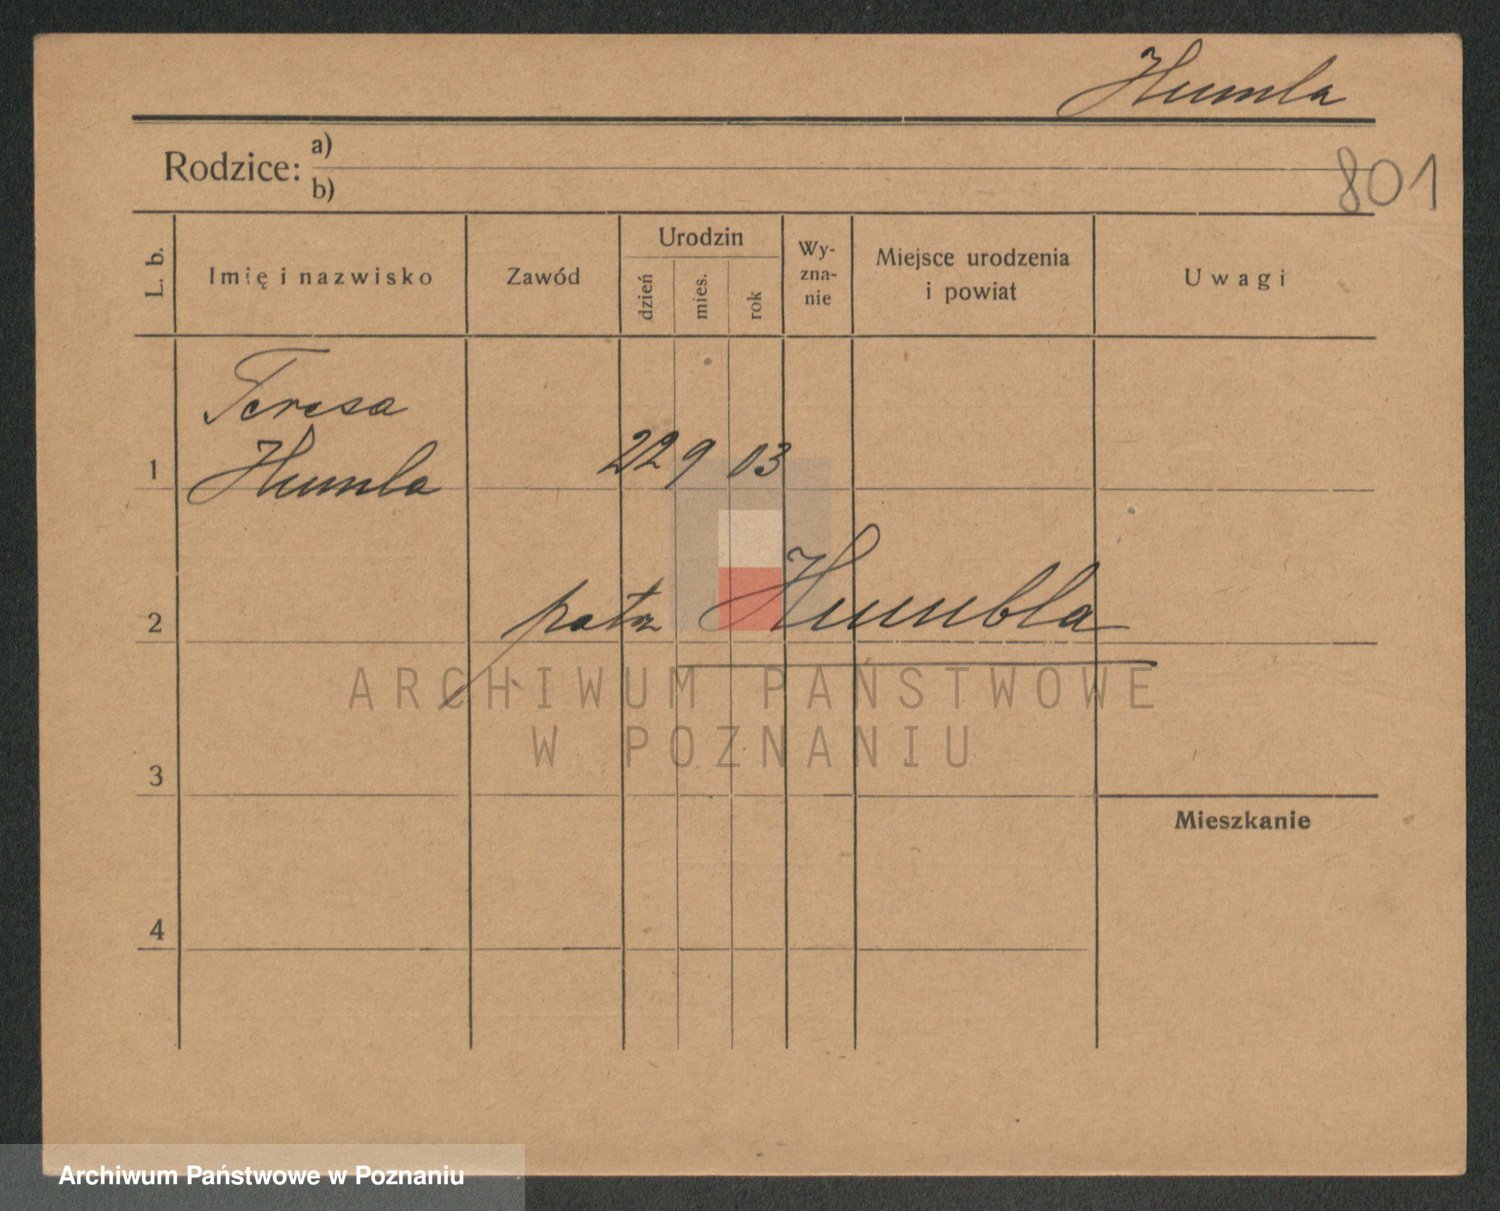 Humla
Rodzice: a)
b)
801
L. b.
Imię i nazwisko
Zawód
Urodzin
dzień
mies.
rok
Wy-
zna-
nie
Miejsce urodzenia
i powiat
Uwagi
Teresa
1 Humla 22 9 03
2 patrz Humbla
ARCHIWUM PAŃSTWOWE
W POZNANIU
3
Mieszkanie
4
Archiwum Państwowe w Poznaniu